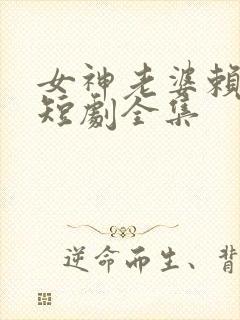 女神老婆賴
短劇全集
逆命而生、背